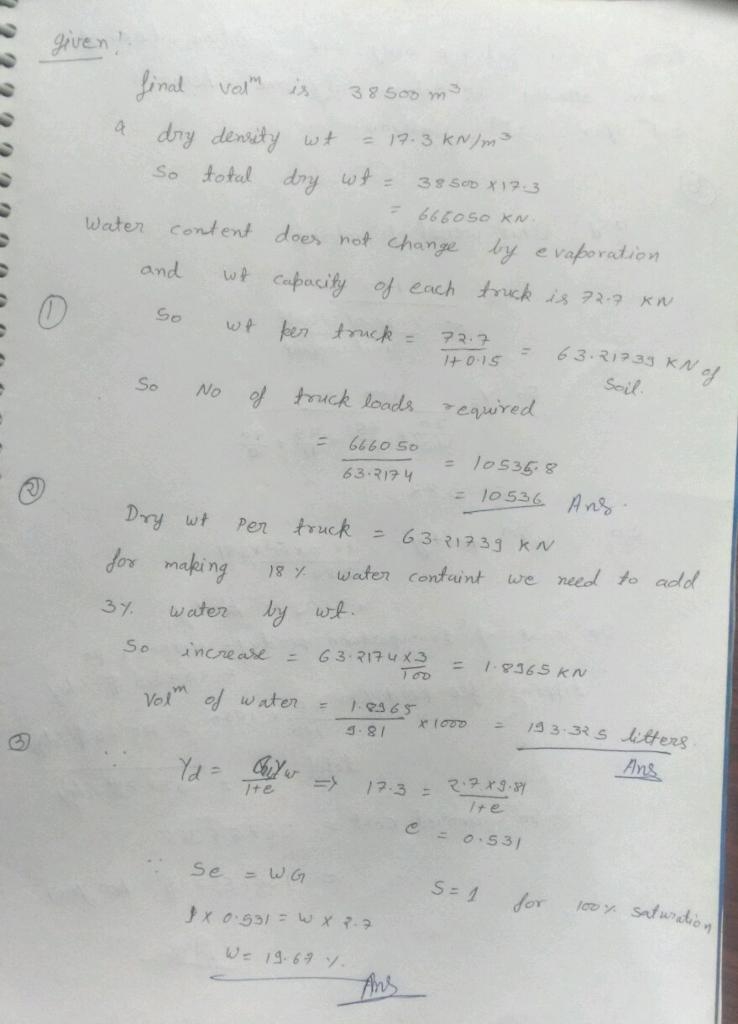 given!
final vol^m is 38500 m³
a dry density wt = 17.3 KN/m³
So total dry wt = 38500 X 17.3
= 666050 KN.
Water content does not change by evaporation
and wt capacity of each truck is 72.7 KN
① So wt per truck = 72.7 / 1+0.15 = 63.21739 KN of Soil.
So No of truck loads required
= 666050 / 63.2174 = 10535.8
= 10536 Ans.
② Dry wt Per truck = 63.21739 KN
for making 18% water containt we need to add
3% water by wt.
So increase = 63.2174 x 3 / 100 = 1.8965 KN
Vol^m of water = 1.8965 / 9.81 x 1000 = 193.325 litters
Ans
③ ∴ γd = Gγw / 1+e => 17.3 = 2.7 x 9.81 / 1+e
e = 0.531
∵ Se = WG S=1 for 100% saturation
1 x 0.531 = W x 2.7
W = 19.67 %.
Ans